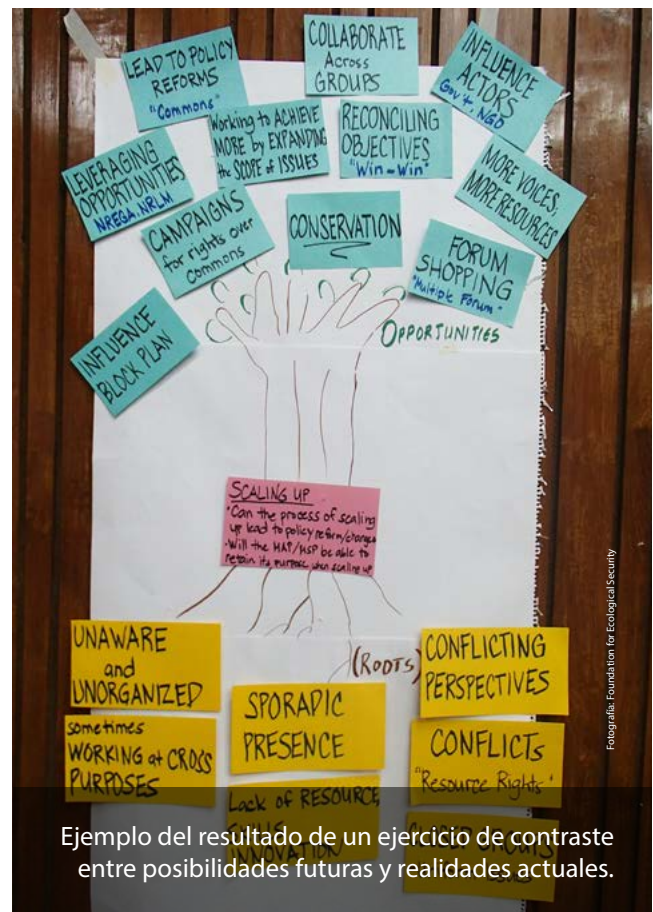 LEAD TO POLICY
REFORMS
"Commons"
COLLABORATE
Across
GROUPS
INFLUENCE
ACTORS
Gov't, NGO
Working to ACHIEVE
MORE by EXPANDING
the SCOPE of ISSUES
RECONCILING
OBJECTIVES
"Win-Win"
LEVERAGING
OPPORTUNITIES
NREGA, NRLM
MORE VOICES,
MORE RESOURCES
CAMPAIGNS
for rights over
commons
CONSERVATION
FORUM
SHOPPING
"Multiple Forum"
INFLUENCE
BLOCK PLAN
OPPORTUNITIES
SCALING UP
Can the process of scaling
up lead to policy reform/changes
Will the MAP/MSP be able to
retain its purpose when scaling up
(ROOTS)
UNAWARE
and
UNORGANIZED
sometimes
WORKING at CROSS
PURPOSES
SPORADIC
PRESENCE
Lack of RESOURCE
INNOVATION
CONFLICTING
PERSPECTIVES
CONFLICTs
"Resource Rights"
Fotografía: Foundation for Ecological Security
Ejemplo del resultado de un ejercicio de contraste
entre posibilidades futuras y realidades actuales.